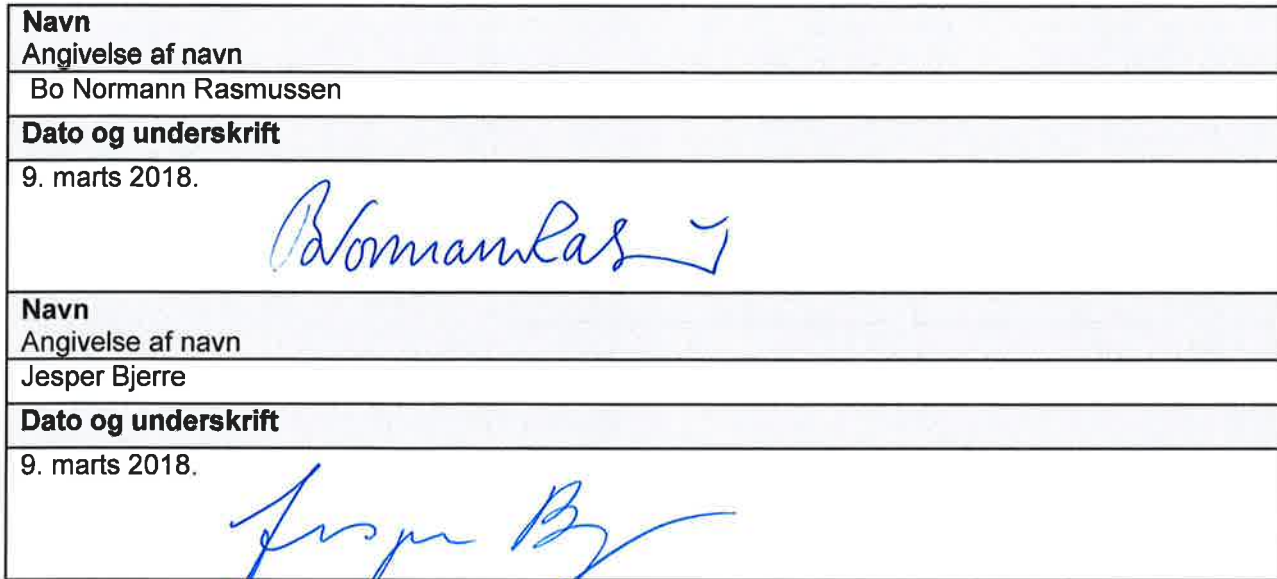 Navn
Angivelse af navn
Bo Normann Rasmussen
Dato og underskrift
9. marts 2018.
Navn
Angivelse af navn
Jesper Bjerre
Dato og underskrift
9. marts 2018.
Jesper